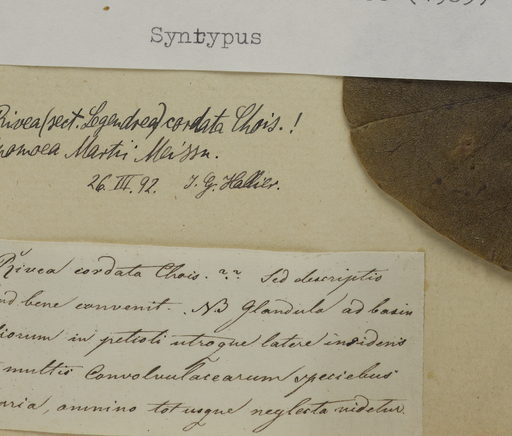 Syntypus
Rivea (sect. Legendrea) cordata Chois.!
Ipomoea Martii Meissn.
26. III. 92. J. G. Hallier.
Rivea cordata Chois. ?? Sed descriptio
bene convenit. NB Glandula ad basin
foliorum in petioli utroque latere insidens
multis Convolvulacearum speciebus
omnino totusque neglecta videtur.